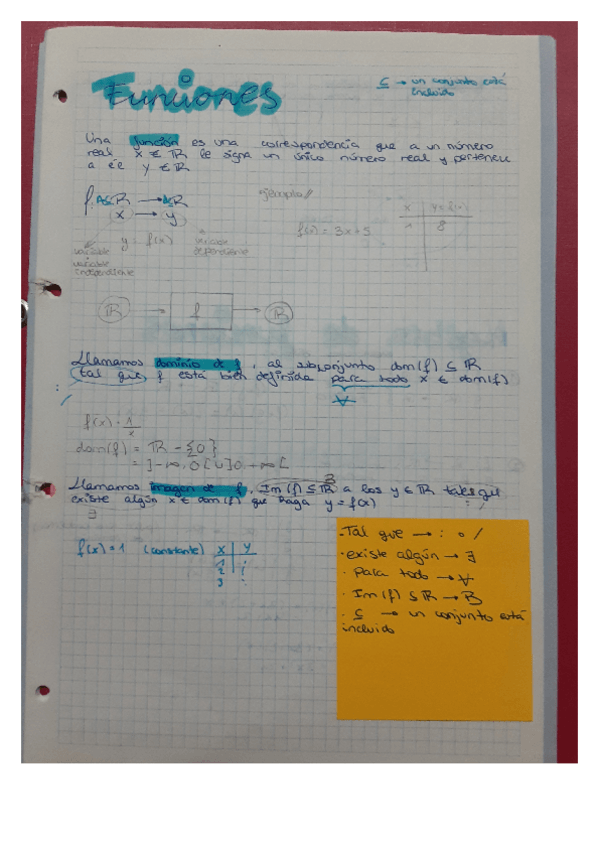 Funciones
⊆ → un conjunto está
incluido
Una función es una correspondencia que a un número
real x ∈ ℝ le signa un único número real y pertenece
a él y ∈ ℝ
f: A⊆ℝ → B⊆ℝ
x → y
y = f(x)
variable
variable
independiente
dependiente
ejemplo
f(x) = 3x+5
x
8
ℝ → f → ℝ
Llamamos dominio de f, al subconjunto dom(f) ⊆ ℝ
tal que f está bien definida para todo x ∈ dom(f)
: /
∀
f(x) = 1/x
dom(f) = ℝ - {0}
= ]-∞, 0[ U ]0, +∞[
Llamamos imagen de f, Im(f) ⊆ ℝ a los y ∈ ℝ tales que
B
existe algún x ∈ dom(f) que haga y = f(x)
∃
: /
f(x) = 1 (constante)
x y
1 1
2 1
3 :
· Tal que → : o /
· existe algún → ∃
· Para todo → ∀
· Im(f) ⊆ ℝ → B
· ⊆ → un conjunto está
incluido